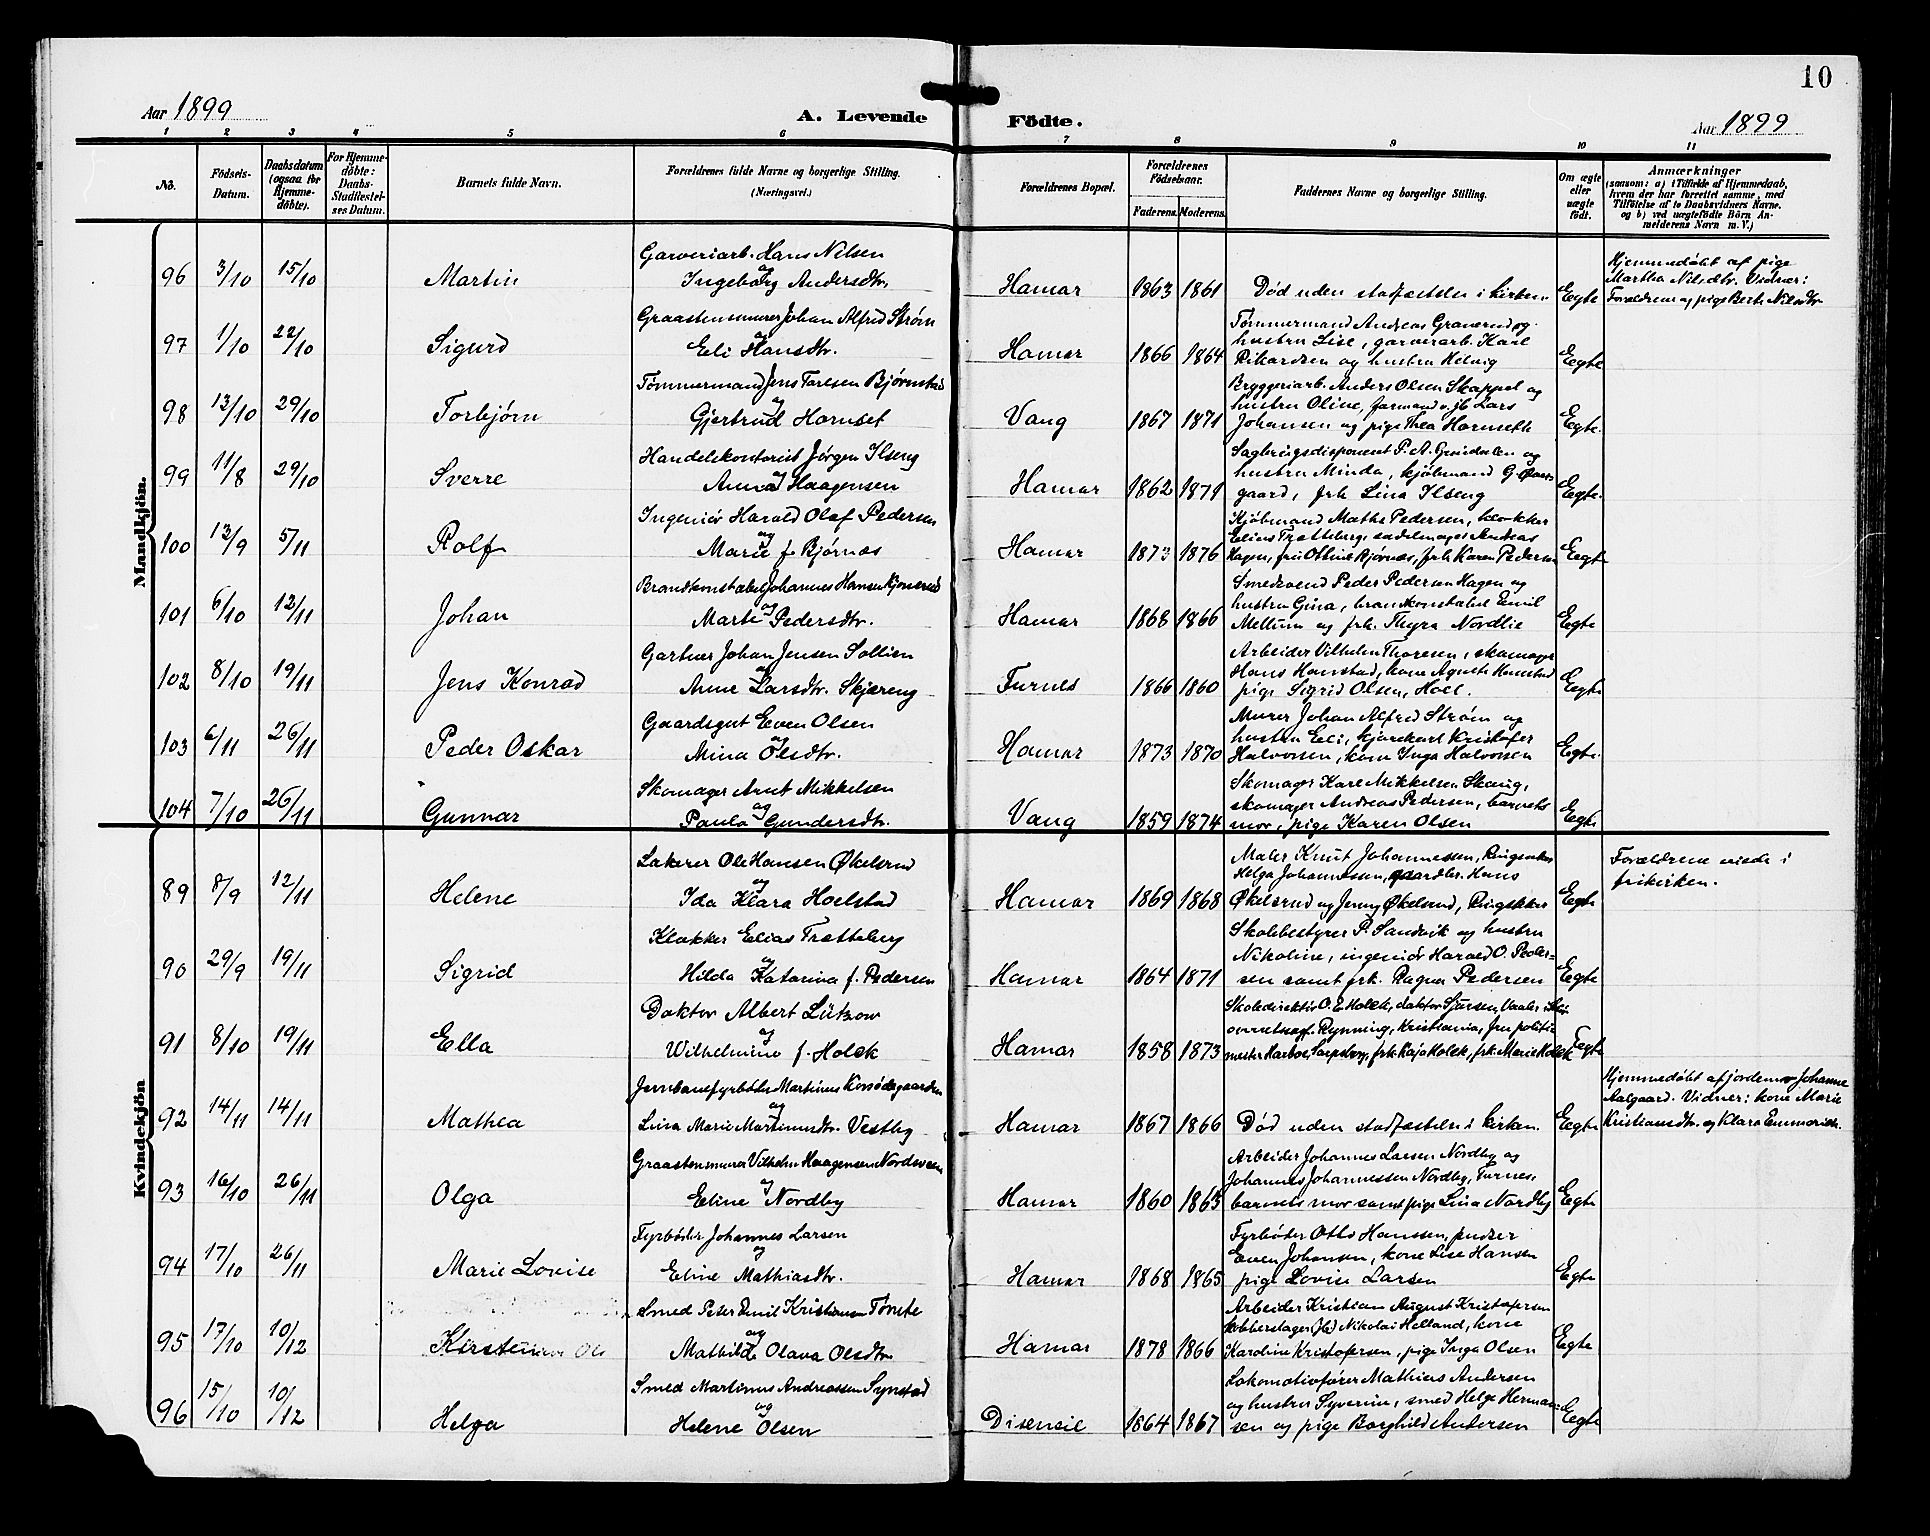 10
Aar 1899
A. Levende Födte.
Aar 1899
1 2 3 4 5 6 7 8 9 10 11
No.
Födsels-Datum.
Daabsdatum (ogsaa for Hjemme-döbte).
For Hjemme-döbte: Daabs-Stadfæstel-ses Datum.
Barnets fulde Navn.
Forældrenes fulde Navne og borgerlige Stilling. (Næringsvei.)
Forældrenes Bopæl.
Forældrenes Födselsaar.
Faderens. Moderens.
Faddernes Navne og borgerlige Stilling.
Om ægte eller uægte födt.
Anmærkninger
(saasom: a) i Tilfælde af Hjemmedaab,
hvem der har forrettet samme, med
Tilföielse af to Daabsvidners Navne,
og b) ved uægtefödte Börn An-
melderens Navn m. V.)
Mandkjön.
96 3/10 15/10 Martin
Garveriarb. Hans Nilsen
og
Ingeborg Andersdtr.
Hamar 1863 1861
Død uden stadfæstelse i kirken
Egte
Hjemmedøbt af pige
Martha Nilsdtr. Vidner:
Forældrene og pige Berthe Nilsdtr
97 1/10 22/10 Sigurd
Graastensmurer Johan Alfred Strøm
og
Eli Hansdtr.
Hamar 1866 1864
Tømmermand Andreas og
hustru Lise, garverarb. Karl
Rikardsen og hustru Helvig
Egte
98 13/10 29/10 Torbjørn
Tømmermand Jens Tarlsen Bjørnstad
og
Gjertrud Hornset
Vang 1867 1871
Bryggeriarb. Anders Olsen Skappel og
hustru Oline, formand v. jb. Lars
Johansen og pige Thea Hornseth
Egte.
99 11/8 29/10 Sverre
Handelskontorist Jørgen Ilseng
og
Anna Haagensen
Hamar 1862 1871
Sagbrugsdisponent P. A. Grindalen og
hustru Minda, kjøbmand G.
gaard, frk Lina Ilseng
Egte.
100 13/9 5/11 Rolf
Ingeniør Harald Olaf Pedersen
og
Marie f. Bjørnæs
Hamar 1873 1876
Kjøbmand Maths Pedersen, klokker
Elias Trætteberg, sadelmager Andreas
Hagen, fru Othine Bjørnæs, frk Karen Pedersen
Egte
101 6/10 12/11 Johan
Brandkonstabel Johannes Hansen
og
Marte Pedersdtr.
Hamar 1868 1866
Smedsvend Peder Pedersen Hagen og
hustru Gina, brankonstabel Emil
Mellum og frk. Thyra Nordlie
Egte
102 8/10 19/11 Jens Konrad
Gartner Johan Jensen Sollien
og
Anne Larsdtr. Skjæreng
Furnes 1866 1860
Arbeider Vilhelm Thoresen, skomager
Hans Hamstad, kone Agnethe Hamstad
pige Sigrid Olsen, Hoel.
Egte
103 6/11 26/11 Peder Oskar
Gaardsgut Even Olsen
og
Mina Olsdtr.
Hamar 1873 1870
Murer Johan Alfred Strøm og
hustru Eli, kjørekarl Kristofer
Halvorsen, kone Inga Halvorsen
Egte.
104 7/10 26/11 Gunnar
Skomager Arnt Mikkelsen
og
Paula Gundersdtr.
Vang 1859 1874
Skomager Karl Mikkelsen Skaug,
skomager Andreas Pedersen, barnets
mor, pige Karen Olsen
Egte
Kvindekjön
89 8/9 12/11 Helene
Lakerer Ole Hansen Økelsrud
og
Ida Klara Hoelstad
Hamar 1869 1868
Maler Knut Johannessen, Ringsaker
Helga Johannessen, gaardbr. Hans
Økelsrud og Jenny Økelsrud, Ringsaker
Egte
Forældrene viede i
frikirken.
90 29/9 19/11 Sigrid
Klokker Elias Trætteberg
og
Hilda Katarina f. Pedersen
Hamar 1864 1871
Skolebestyrer P. Sandvik og hustru
Nikoline, ingeniør Harald O. Peder-
sen samt frk. Ragna Pedersen
Egte
91 8/10 19/11 Ella
Doktor Albert Lützow
og
Wilhelmine f. Holck
Hamar 1858 1873
Skoledirektør O. E. Holck, doktor Sjursen, Vaaler i
overretssagf. Rynning, Kristiania, fru politi-
mester Harboe, Sarpsborg, frk. Kaja Holck, frk. Marie Holck
Egte
92 14/11 14/11 Mathea
Jernbanefyrbøder Martinus Korsødegaarden
og
Lina Marie Martinusdtr. Vestby
Hamar 1867 1866
Død uden stadfæstelse i kirken.
Egte
Hjemmedøbt af jordemor Johanne
Aalgaard. Vidner: kone Marie
Kristiansdtr. og Klara
93 16/10 26/11 Olga
Graastensmurer Vilhelm Haagensen Nordsveen
og
Eline Nordby
Hamar 1860 1865
Arbeider Johannes Larsen Nordby og
Johannes Johannessen Nordby, Furnes,
barnets mor samt pige Lina Nordby
Egte
94 17/10 26/11 Marie Lovise
Fyrbøder Johannes Larsen
og
Eline Mathiasdtr.
Hamar 1868 1865
Fyrbøder Otto Hanssen, pudser
Even Johansen, kone Lise Hansen
pige Lovise Larsen
Egte
95 17/10 10/12 Kirsten
Smed Peter Emil Kristiansen Tømte
og
Mathilde Olava Olsdtr.
Hamar 1878 1866
Arbeider Kristian August Kristofersen
kobberslager (jb) Nikolai Helland, kone
Karoline Kristofersen, pige Inga Olsen
Egte
96 15/10 10/12 Helga
Smed Martinus Andreassen Synstad
og
Helene Olsen
Disenseie 1864 1867
Lokomotivfører Mathias Andersen
og hustru Syverine, smed Helge Herman-
sen og pige Borghild Andersen
Egte